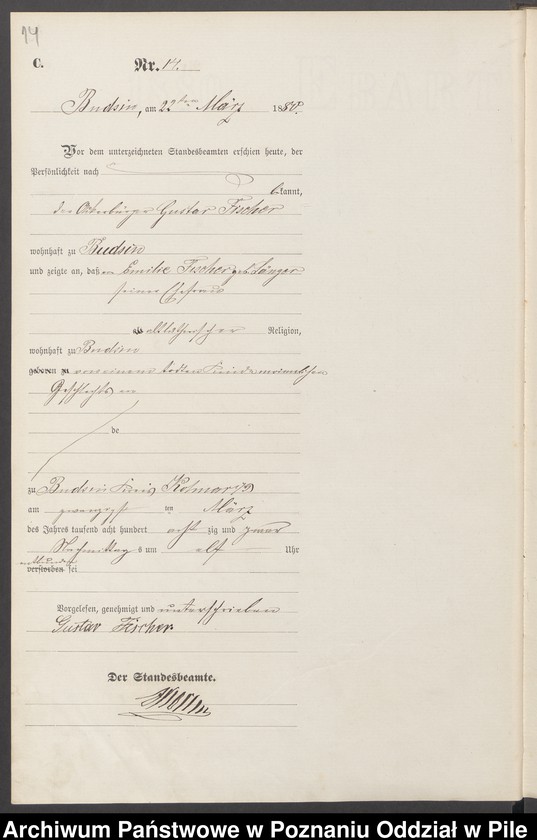 14
C.
Nr. 14.
Budsin, am 22ten März 1880.
Vor dem unterzeichneten Standesbeamten erschien heute, der
Persönlichkeit nach
bekannt,
der Ackerbürger Gustav Fischer
wohnhaft zu Budsin
und zeigte an, daß von Emilie Fischer geb. Länger
seiner Ehefrau
altlutherischer Religion,
wohnhaft zu Budsin
geboren zu von einem todten Kinde männlichen
Geschlechts
de
zu Budsin Kreis Kolmar i/P
am zwanzigst ten März
des Jahres tausend acht hundert acht zig und zwar
Nachmittag s um elf Uhr
entbunden
verstorben sei
Vorgelesen, genehmigt und unterschrieben
Gustav Fischer.
Der Standesbeamte.
Archiwum Państwowe w Poznaniu Oddział w Pile